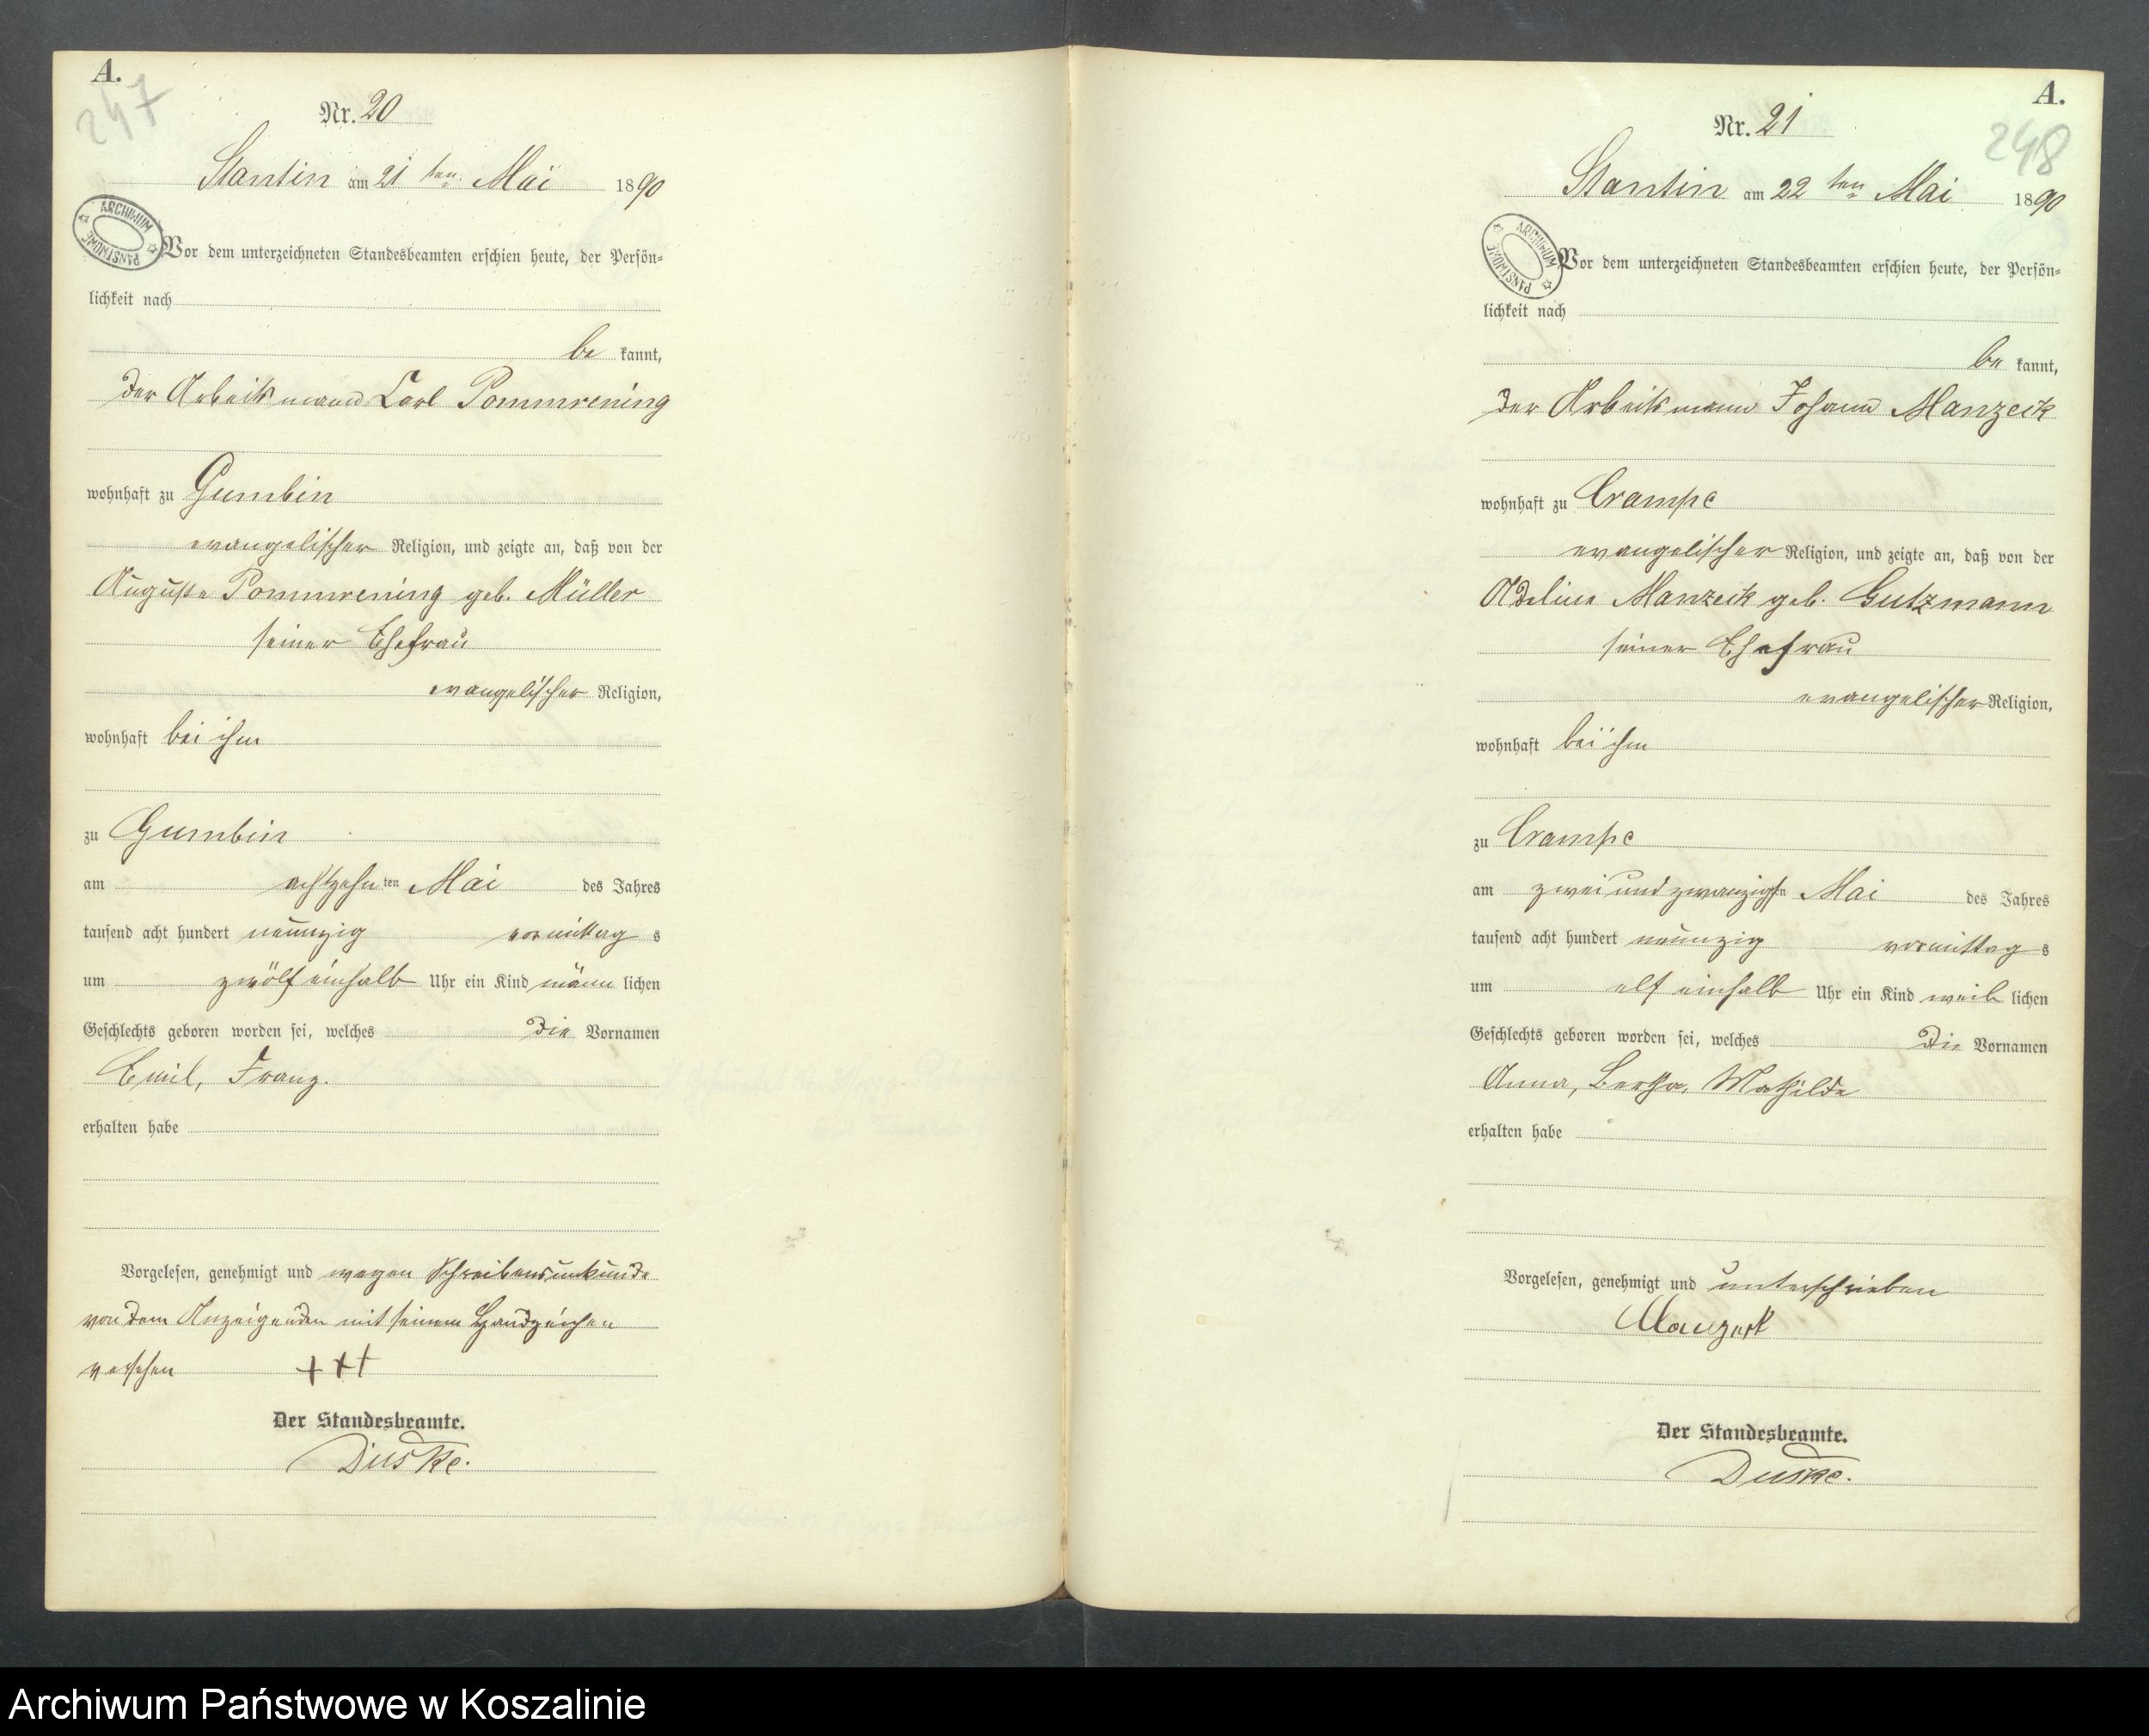 A.
247
Nr. 20
Stantin am 21 ten Mai 1890
ARCHIWUM PAŃSTWOWE
Vor dem unterzeichneten Standesbeamten erschien heute, der Persön=
lichkeit nach
be kannt,
der Arbeitsmann Carl Pommrening
wohnhaft zu Gumbin
evangelischer Religion, und zeigte an, daß von der
Auguste Pommrening geb. Müller
seiner Ehefrau
evangelischer Religion,
wohnhaft bei ihm
zu Gumbin
am achtzehn ten Mai des Jahres
tausend acht hundert neunzig vormittag s
um zwölf einhalb Uhr ein Kind männ lichen
Geschlechts geboren worden sei, welches die Vornamen
Emil, Franz.
erhalten habe
Vorgelesen, genehmigt und wegen Schreibensunkunde
von dem Anzeigenden mit seinem Handzeichen
versehen +++
Der Standesbeamte.
Duske.
A.
248
Nr. 21
Stantin am 22 ten Mai 1890
ARCHIWUM PAŃSTWOWE
Vor dem unterzeichneten Standesbeamten erschien heute, der Persön=
lichkeit nach
be kannt,
der Arbeitsmann Johann Manzeck
wohnhaft zu Crampe
evangelischer Religion, und zeigte an, daß von der
Adeline Manzeck geb. Gutzmann
seiner Ehefrau
evangelischer Religion,
wohnhaft bei ihm
zu Crampe
am zwei und zwanzigsten Mai des Jahres
tausend acht hundert neunzig vormittag s
um elf einhalb Uhr ein Kind weib lichen
Geschlechts geboren worden sei, welches die Vornamen
Anna, Bertha, Mathilde
erhalten habe
Vorgelesen, genehmigt und unterschrieben
Manzeck
Der Standesbeamte.
Duske.
Archiwum Państwowe w Koszalinie